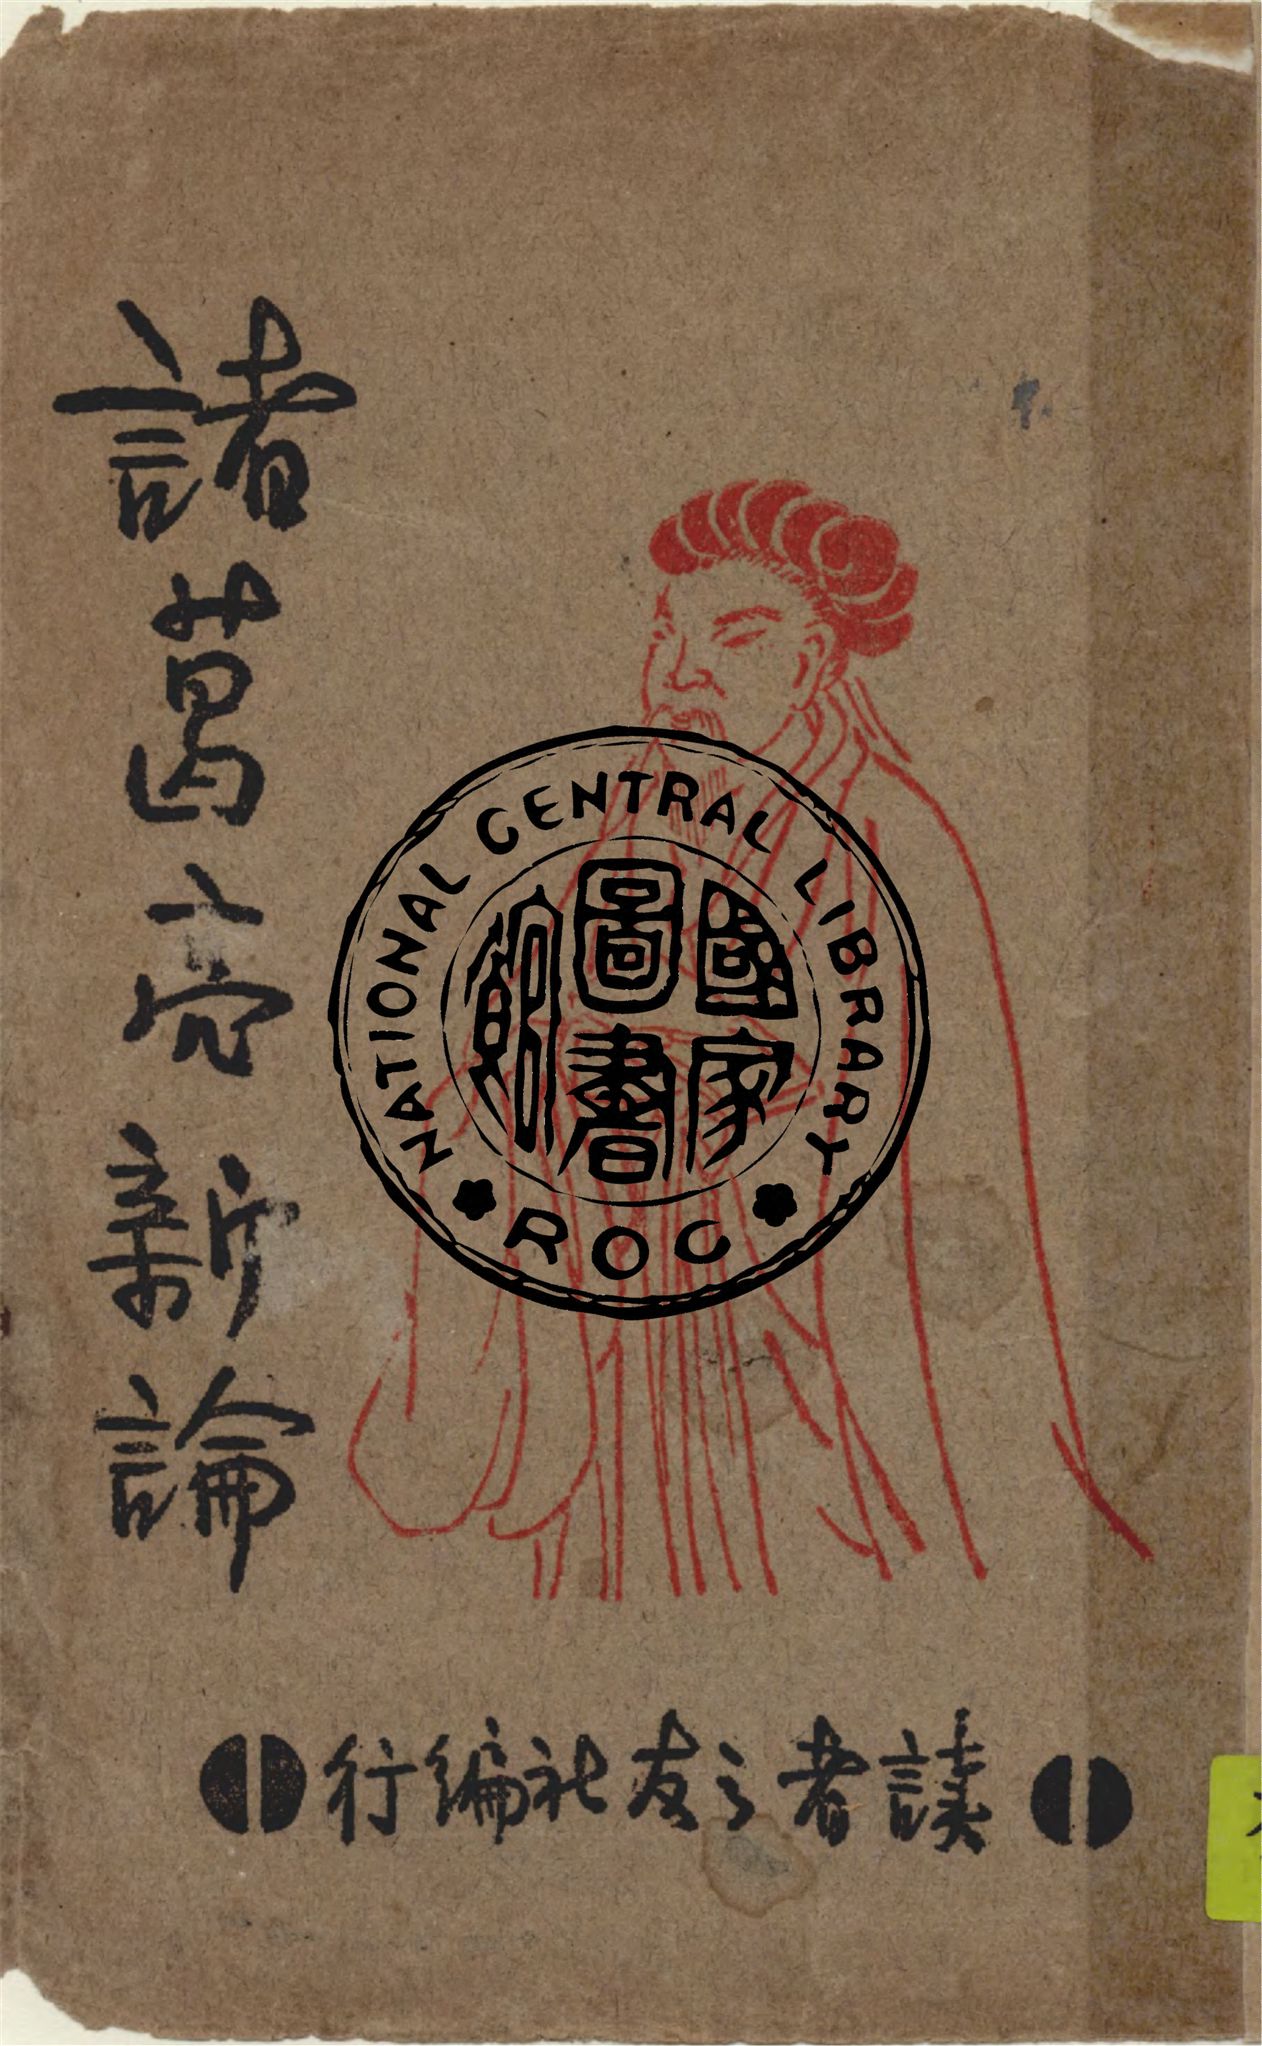 諸葛亮新論
NATIONAL CENTRAL LIBRARY
國家圖書館
ROC
讀者之友社編行